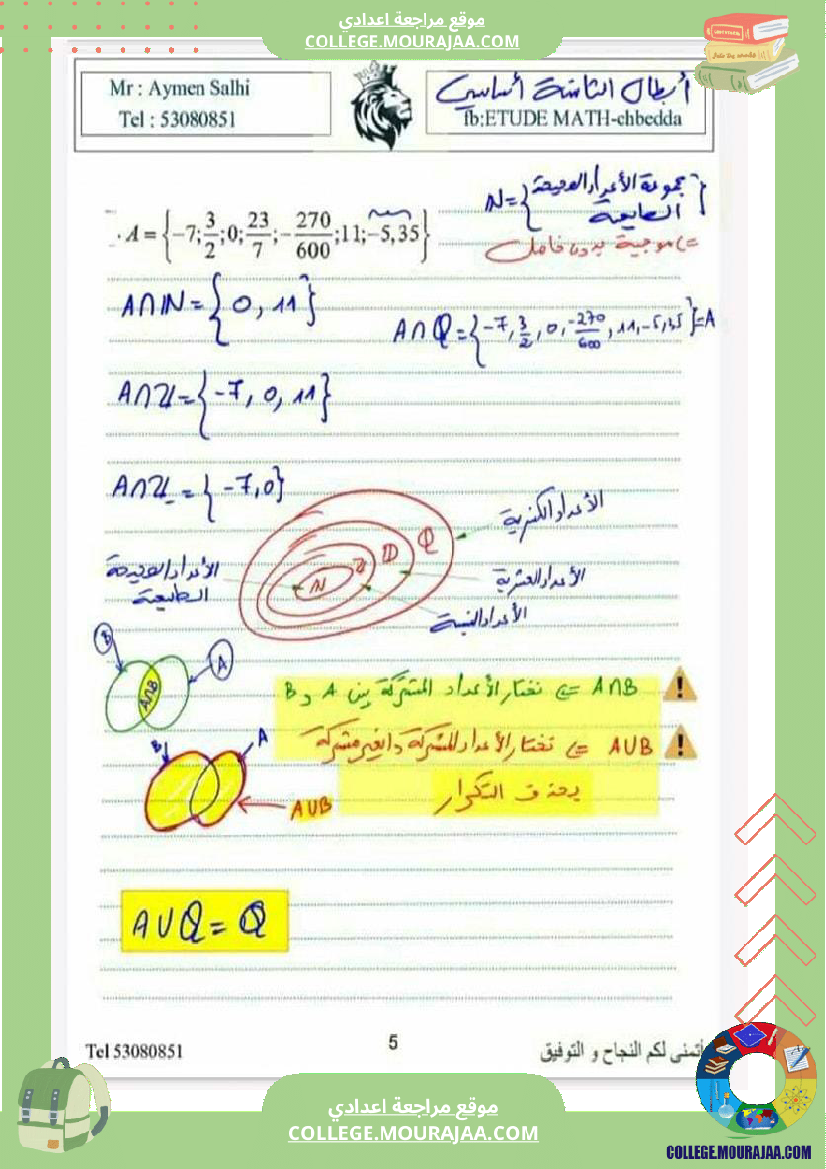 موقع مراجعة اعدادي
COLLEGE.MOURAJAA.COM
Mr : Aymen Salhi
Tel : 53080851
أبطال الثامنة أساسي
fb:ETUDE MATH-chbedda
N = { مجموعة الأعداد الصحيحة الطبيعية }
=> موجبة بدون فاصل
A = {-7; 3/2; 0; 23/7; -270/600; 11; -5,35}
A∩IN = {0, 11}
A∩Q = {-7, 3/2, 0, -270/600, 11, -5,35} = A
A∩Z = {-7, 0, 11}
A∩Z_ = {-7, 0}
الأعداد الكسرية
Q
ID
Z
N
الأعداد الصحيحة
الطبيعية
الأعداد العشرية
الأعداد النسبية
B
A
A∩B
A∩B => نختار الأعداد المشتركة بين A و B
B
A
A∪B
A∪B => نختار الأعداد المشتركة والغير مشتركة
بحذف التكرار
A∪Q = Q
Tel 53080851
5
أتمنى لكم النجاح و التوفيق
موقع مراجعة اعدادي
COLLEGE.MOURAJAA.COM
COLLEGE.MOURAJAA.COM